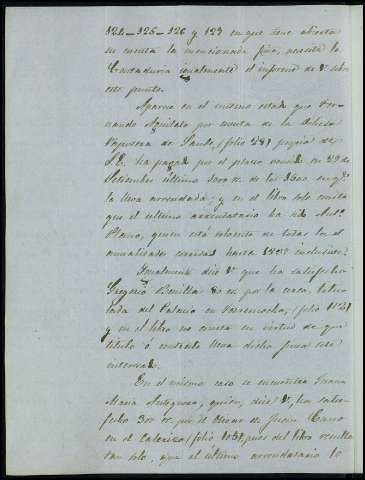 124–125–126 y 127 en que tiene abierta
su cuenta la mencionada finca, necesita la
Contaduria igualmente el informe de V. sobre
este punto.
Aparece en el mismo estado que Fer-
nando Aguilar por cuenta de la Dehesa
de Santo, (folio 281 propia de
S.E. ha pagado por el plazo vencido en 29 de
Setiembre último 3000 rs. de los en que
la lleva arrendada; y en el libro solo consta
que el último arrendatario ha sido Antº
Plano, quien está solvente de todas las
anualidades vencidas hasta inclusive.
Igualmente dice V. que ha satisfecho
Gregorio Bonilla 80 rs. por la cerca, titu-
lada del Palacio en Torremocha, (folio
y en el libro no consta en virtud de que
título ó contrato lleva dicha finca este
interesado.
En el mismo caso se encuentra Juana
Maria Antequera, quien, dice V., ha satis-
fecho 300 rs. por el Olivar de Juan Cano
en el (folio pues del libro resulta
tan solo, que el último arrendatario lo